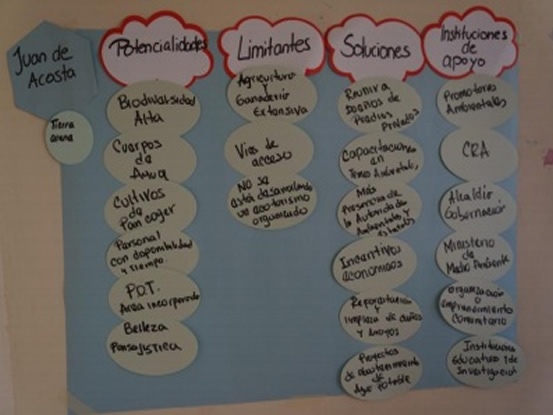 Juan de
Acosta
Tierra
arena
Potencialidades
Biodiversidad
Alta
Cuerpos
de
Agua
Cultivos
de
Pan coger
Personal
con disponibilidad
y tiempo.
P.O.T.
Area incorporada
Belleza
Paisajistica
Limitantes
Agricultura
y
Ganaderia
Extensiva
Vias de
acceso
No se
está desarrollando
un ecoturismo
organizado
Soluciones
Reunir a
Dueños de
Predios
Privados
Capacitaciones
en
Temas Ambientales,
Más
Presencia de
la Autoridades
Ambientales y
estatales
Incentivos
economicos
Reforestación
y
limpieza de caños
y arroyos
Proyectos
de abastecimiento
de
Agua Potable
Instituciones
de
apoyo
Promotores
Ambientales
CRA
Alcaldia,
Gobernación
Ministerio
de
Medio Ambiente
organización
o
emprendimiento
Comunitario
Instituciones
Educativas y de
Investigación